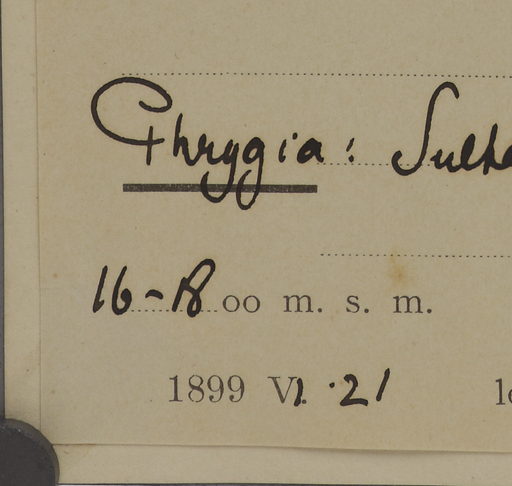 Phrygia: Sulta
16-1800 m. s. m.
1899 VI. 21